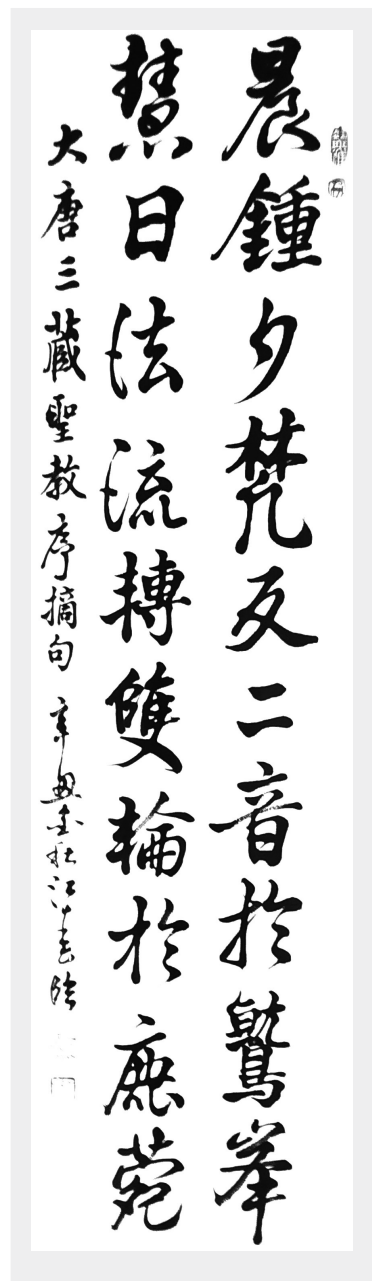 晨鍾夕梵交二音於鷲峯
慧日法流轉雙輪於鹿菀
大唐三藏聖教序摘句 辛丑金秋江